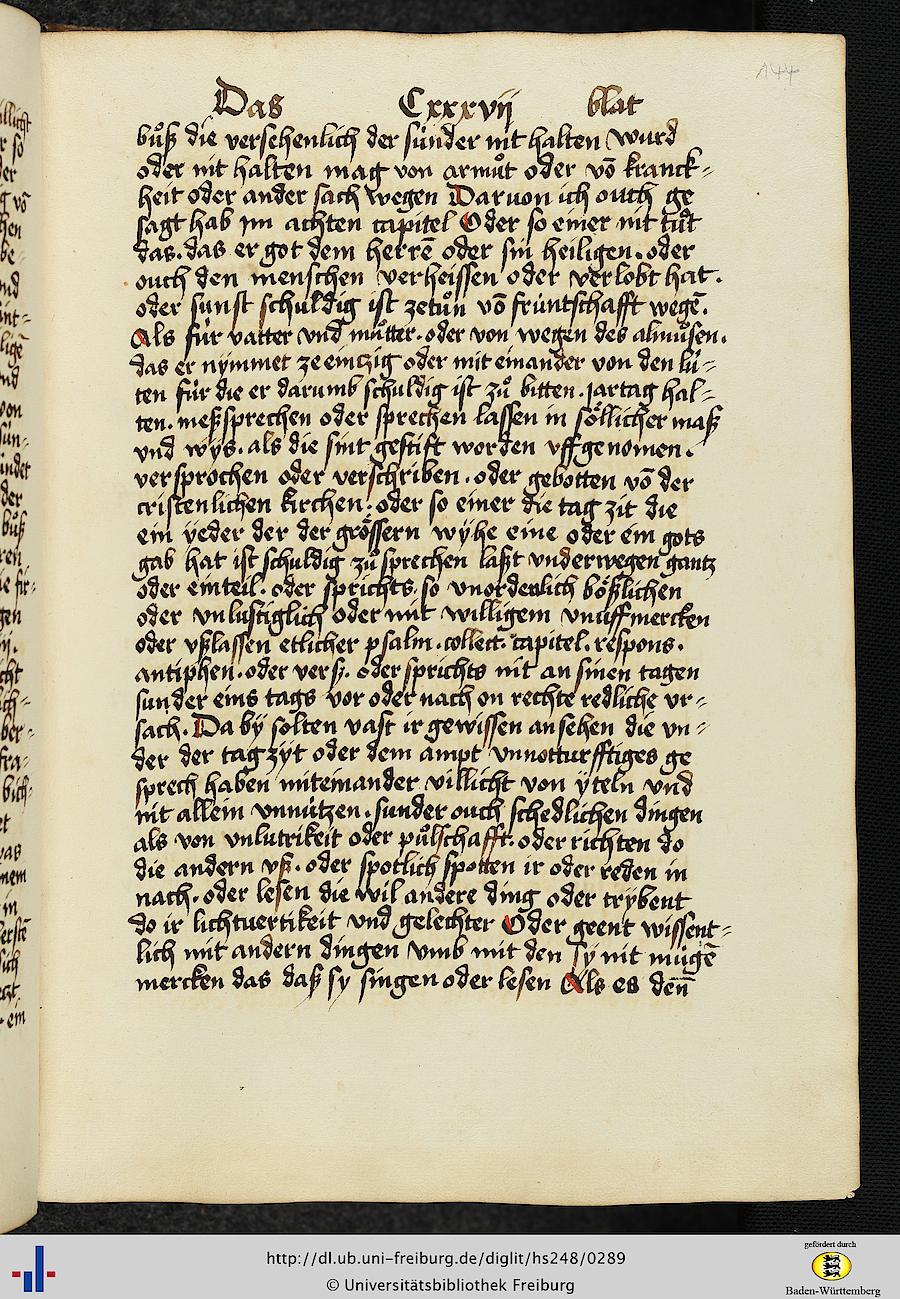 144
Das Cxxxvij blat
bůß die versehenlich der sünder nit halten wurd
oder nit halten mag von armůt oder võ kranck-
heit oder ander sach wegen Daruon ich ouch ge
sagt hab jm achten capitel Oder so einer nit tůt
das. das er got dem herrẽ oder sin heiligen. oder
ouch den menschen verheissen oder verlobt hat.
oder sunst schuldig ist zetůn võ früntschafft wegẽ.
Als für vatter vnd můtter. oder von wegen des almůsen.
das er nymmet ze eintzig oder mit einander von den lü-
ten für die er darumb schuldig ist zů bitten. jartag hal-
ten. meßsprechen oder sprechen lassen in söllicher maß
vnd wys. als die sint gestift worden vffgenomen.
versprochen oder verschriben. oder gebotten võ der
cristenlichen kirchen. oder so einer die tag zit die
ein yeder der der grössern wyhe eine oder ein gots
gab hat ist schuldig zů sprechen laßt vnderwegen gantz
oder einteil. oder sprichts so vnordenlich bößlichen
oder vnlustiglich oder mit willigem vnuffmercken
oder vßlassen etlicher psalm. collect. capitel. respons.
antiphen. oder verß. oder sprichts nit an sinen tagen
sunder eins tags vor oder nach on rechte redliche vr-
sach. Da by solten vast ir gewissen ansehen die vn-
der der tag zyt oder dem ampt vnnotturfftiges ge
sprech haben miteinander villicht von yteln vnd
nit allein vnnützen. sunder ouch schedlichen dingen
als von vnlutrikeit oder půlschafft. oder richten do
die andern vß. oder spotlich spotten ir oder reden in
nach. oder lesen die wil andere ding oder trybent
do ir lichtuertikeit vnd gelechter Oder geent wissent-
lich mit andern dingen vmb mit den sy nit mügẽ
mercken das daß sy singen oder lesen Als es deñ
http://dl.ub.uni-freiburg.de/diglit/hs248/0289
© Universitätsbibliothek Freiburg
gefördert durch
Baden-Württemberg